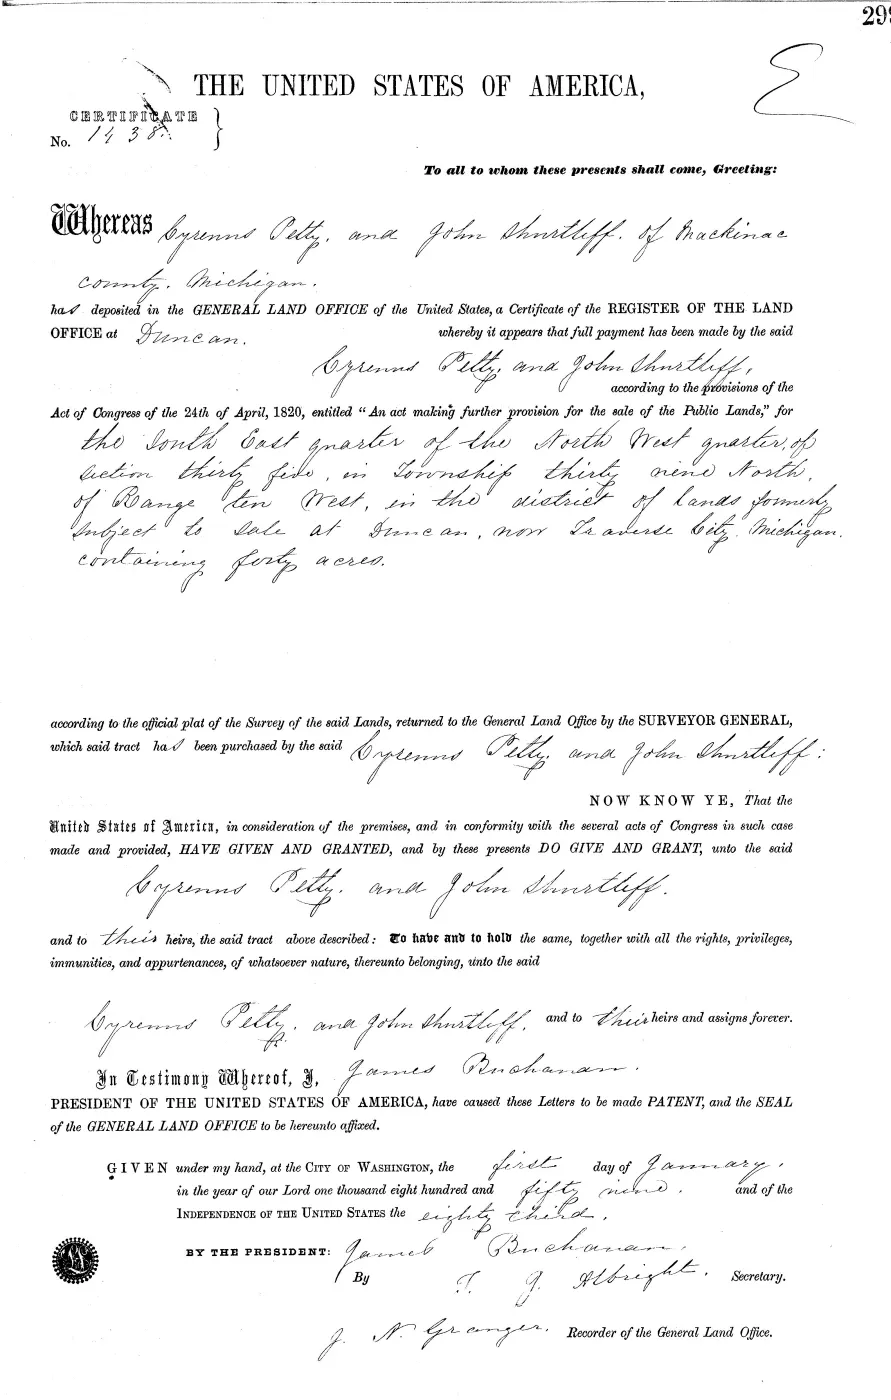 299
THE UNITED STATES OF AMERICA,
E
CERTIFICATE
No. 1438
To all to whom these presents shall come, Greeting:
Whereas Cyrenus Petty, and John Shurtliff. of Mackinac
county. Michigan.
has deposited in the GENERAL LAND OFFICE of the United States, a Certificate of the REGISTER OF THE LAND
OFFICE at Duncan. whereby it appears that full payment has been made by the said
Cyrenus Petty, and John Shurtliff,
according to the provisions of the
Act of Congress of the 24th of April, 1820, entitled “An act making further provision for the sale of the Public Lands,” for
the South East quarter of the North West quarter, of
section thirty five, in Township thirty nine North,
of Range ten West, in the district of lands formerly
subject to sale at Duncan, now Traverse City. Michigan.
containing forty acres.
according to the official plat of the Survey of the said Lands, returned to the General Land Office by the SURVEYOR GENERAL,
which said tract has been purchased by the said Cyrenus Petty, and John Shurtliff:
NOW KNOW YE, That the
United States of America, in consideration of the premises, and in conformity with the several acts of Congress in such case
made and provided, HAVE GIVEN AND GRANTED, and by these presents DO GIVE AND GRANT, unto the said
Cyrenus Petty. and John Shurtliff.
and to their heirs, the said tract above described: To have and to hold the same, together with all the rights, privileges,
immunities, and appurtenances, of whatsoever nature, thereunto belonging, unto the said
Cyrenus Petty. and John Shurtliff, and to their heirs and assigns forever.
In Testimony Whereof, I, James Buchanan.
PRESIDENT OF THE UNITED STATES OF AMERICA, have caused these Letters to be made PATENT, and the SEAL
of the GENERAL LAND OFFICE to be hereunto affixed.
GIVEN under my hand, at the CITY OF WASHINGTON, the first day of January,
in the year of our Lord one thousand eight hundred and fifty nine. and of the
INDEPENDENCE OF THE UNITED STATES the eighty third.
BY THE PRESIDENT: James Buchanan.
By T. J. Albright. Secretary.
J. N. Granger. Recorder of the General Land Office.